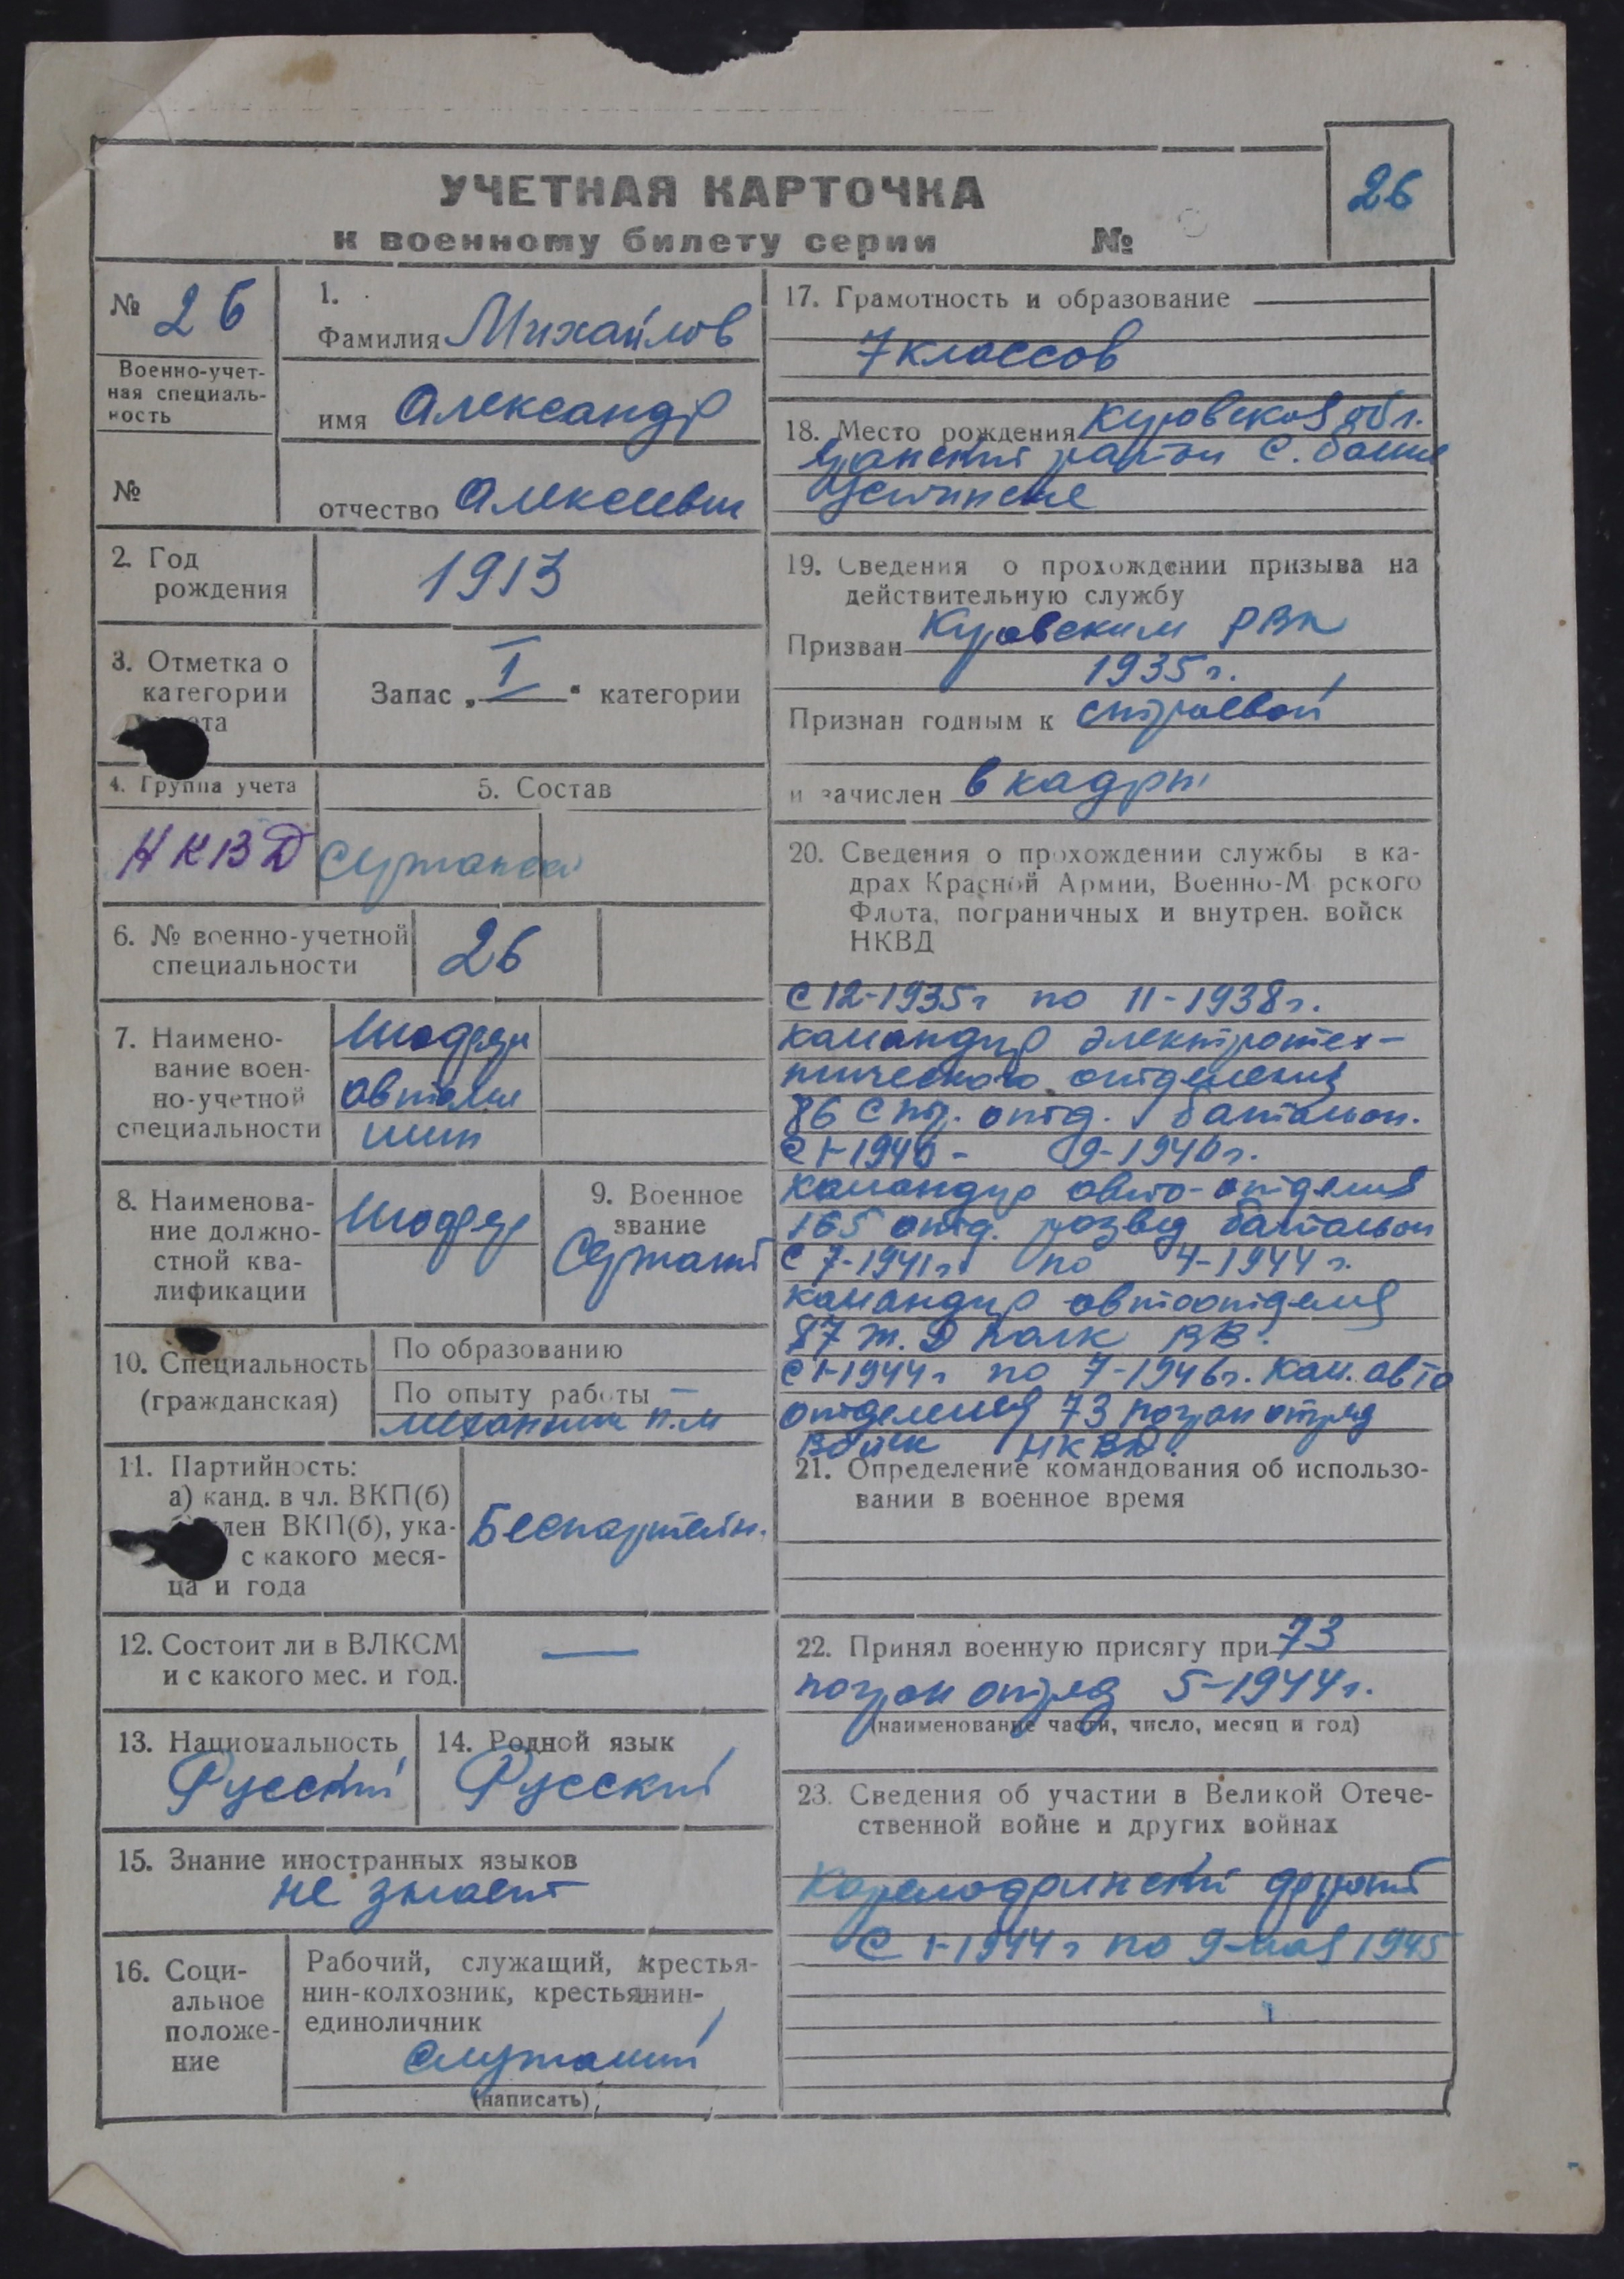 26
УЧЕТНАЯ КАРТОЧКА
к военному билету серии №
№ 26
Военно-учет-
ная специаль-
ность
№
1.
Фамилия Михайлов
имя Александр
отчество Алексеевич
2. Год
рождения
1913
3. Отметка о
категории
Запас „I“ категории
4. Группа учета
НКВД
5. Состав
Сержанский
6. № военно-учетной
специальности
26
7. Наимено-
вание воен-
но-учетной
специальности
Шофера
автома
шин
8. Наименова-
ние должно-
стной ква-
лификации
Шофер
9. Военное
звание
Сержант
10. Специальность
(гражданская)
По образованию
По опыту работы —
механик
11. Партийность:
а) канд. в чл. ВКП(б)
член ВКП(б), ука-
с какого меся-
ца и года
Беспартейн.
12. Состоит ли в ВЛКСМ
и с какого мес. и год.
—
13. Национальность
Русский
14. Родной язык
Русский
15. Знание иностранных языков
не знает
16. Соци-
альное
положе-
ние
Рабочий, служащий, крестья-
нин-колхозник, крестьянин-
единоличник
служащий
(написать)
17. Грамотность и образование
7 классов
18. Место рождения Кировская обл.
район с.
19. Сведения о прохождении призыва на
действительную службу
Призван Кировским РВК
1935 г.
Признан годным к строевой
и зачислен в кадры
20. Сведения о прохождении службы в ка-
драх Красной Армии, Военно-Морского
Флота, пограничных и внутрен. войск
НКВД
С 12-1935г по 11-1938г.
командир электротех-
нического отделения
86 стр. отд. батальон.
С 1-1940 - 9-1940г.
командир авто-отделения
165 отд. развед батальон
С 7-1941г. по 4-1944 г.
командир автоотделения
87 ж.д полк ВВ.
С 1-1944г по 7-1946г. ком. авто
отделения 73 погран отряд
Войск НКВД.
21. Определение командования об использо-
вании в военное время
22. Принял военную присягу при 73
погран отряд 5-1944г.
(наименование части, число, месяц и год)
23. Сведения об участии в Великой Отече-
ственной войне и других войнах
Карелофинский фронт
С 1-1944 г по 9-мая 1945